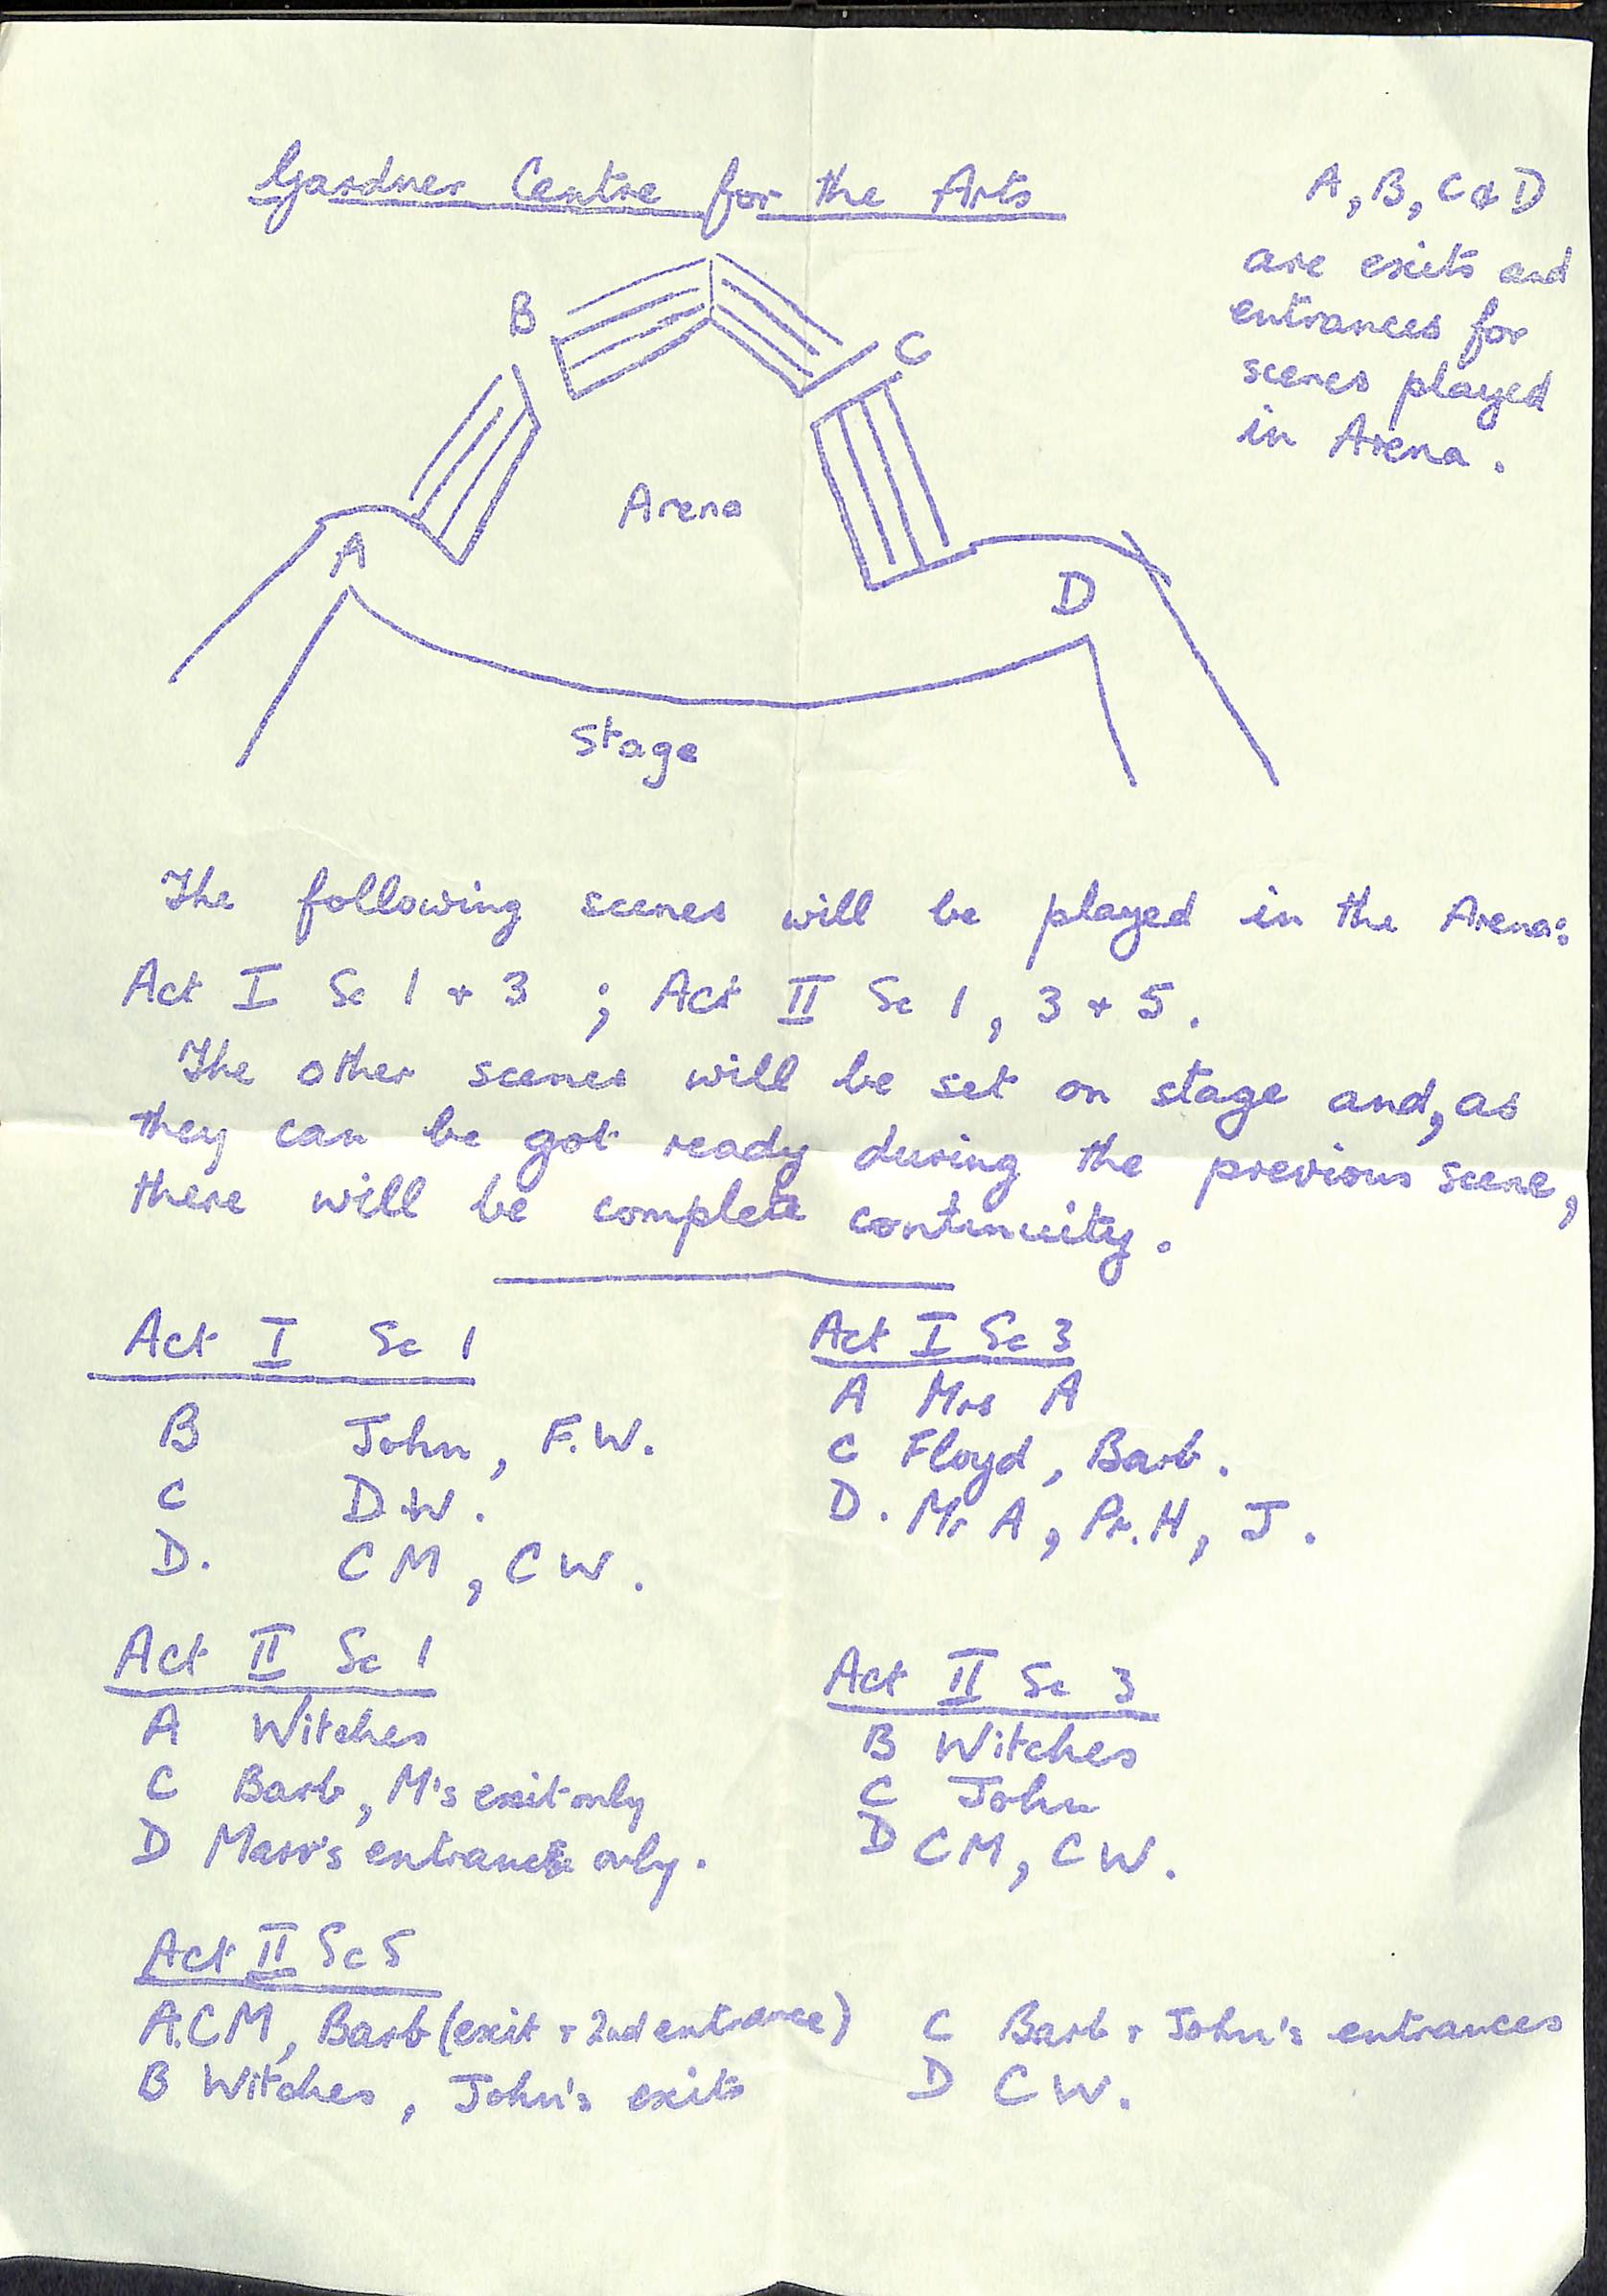 Gardner Centre for the Arts
A, B, C & D
are exits and
entrances for
scenes played
in Arena.
B
C
Arena
A
D
Stage
The following scenes will be played in the Arena:
Act I Sc 1 + 3 ; Act II Sc 1, 3 + 5.
The other scenes will be set on stage and, as
they can be got ready during the previous scene,
there will be complete continuity.
Act I Sc 1
B John, F.W.
C D.W.
D. CM, CW.
Act I Sc 3
A Mrs A
C Floyd, Barb.
D. Mr A, Pr. H, J.
Act II Sc 1
A Witches
C Barb, M's exit only
D Marv's entrance only.
Act II Sc 3
B Witches
C John
D CM, CW.
Act II Sc 5
A. CM, Barb (exit + 2nd entrance)
B Witches, John's exits
C Barb + John's entrances
D CW.